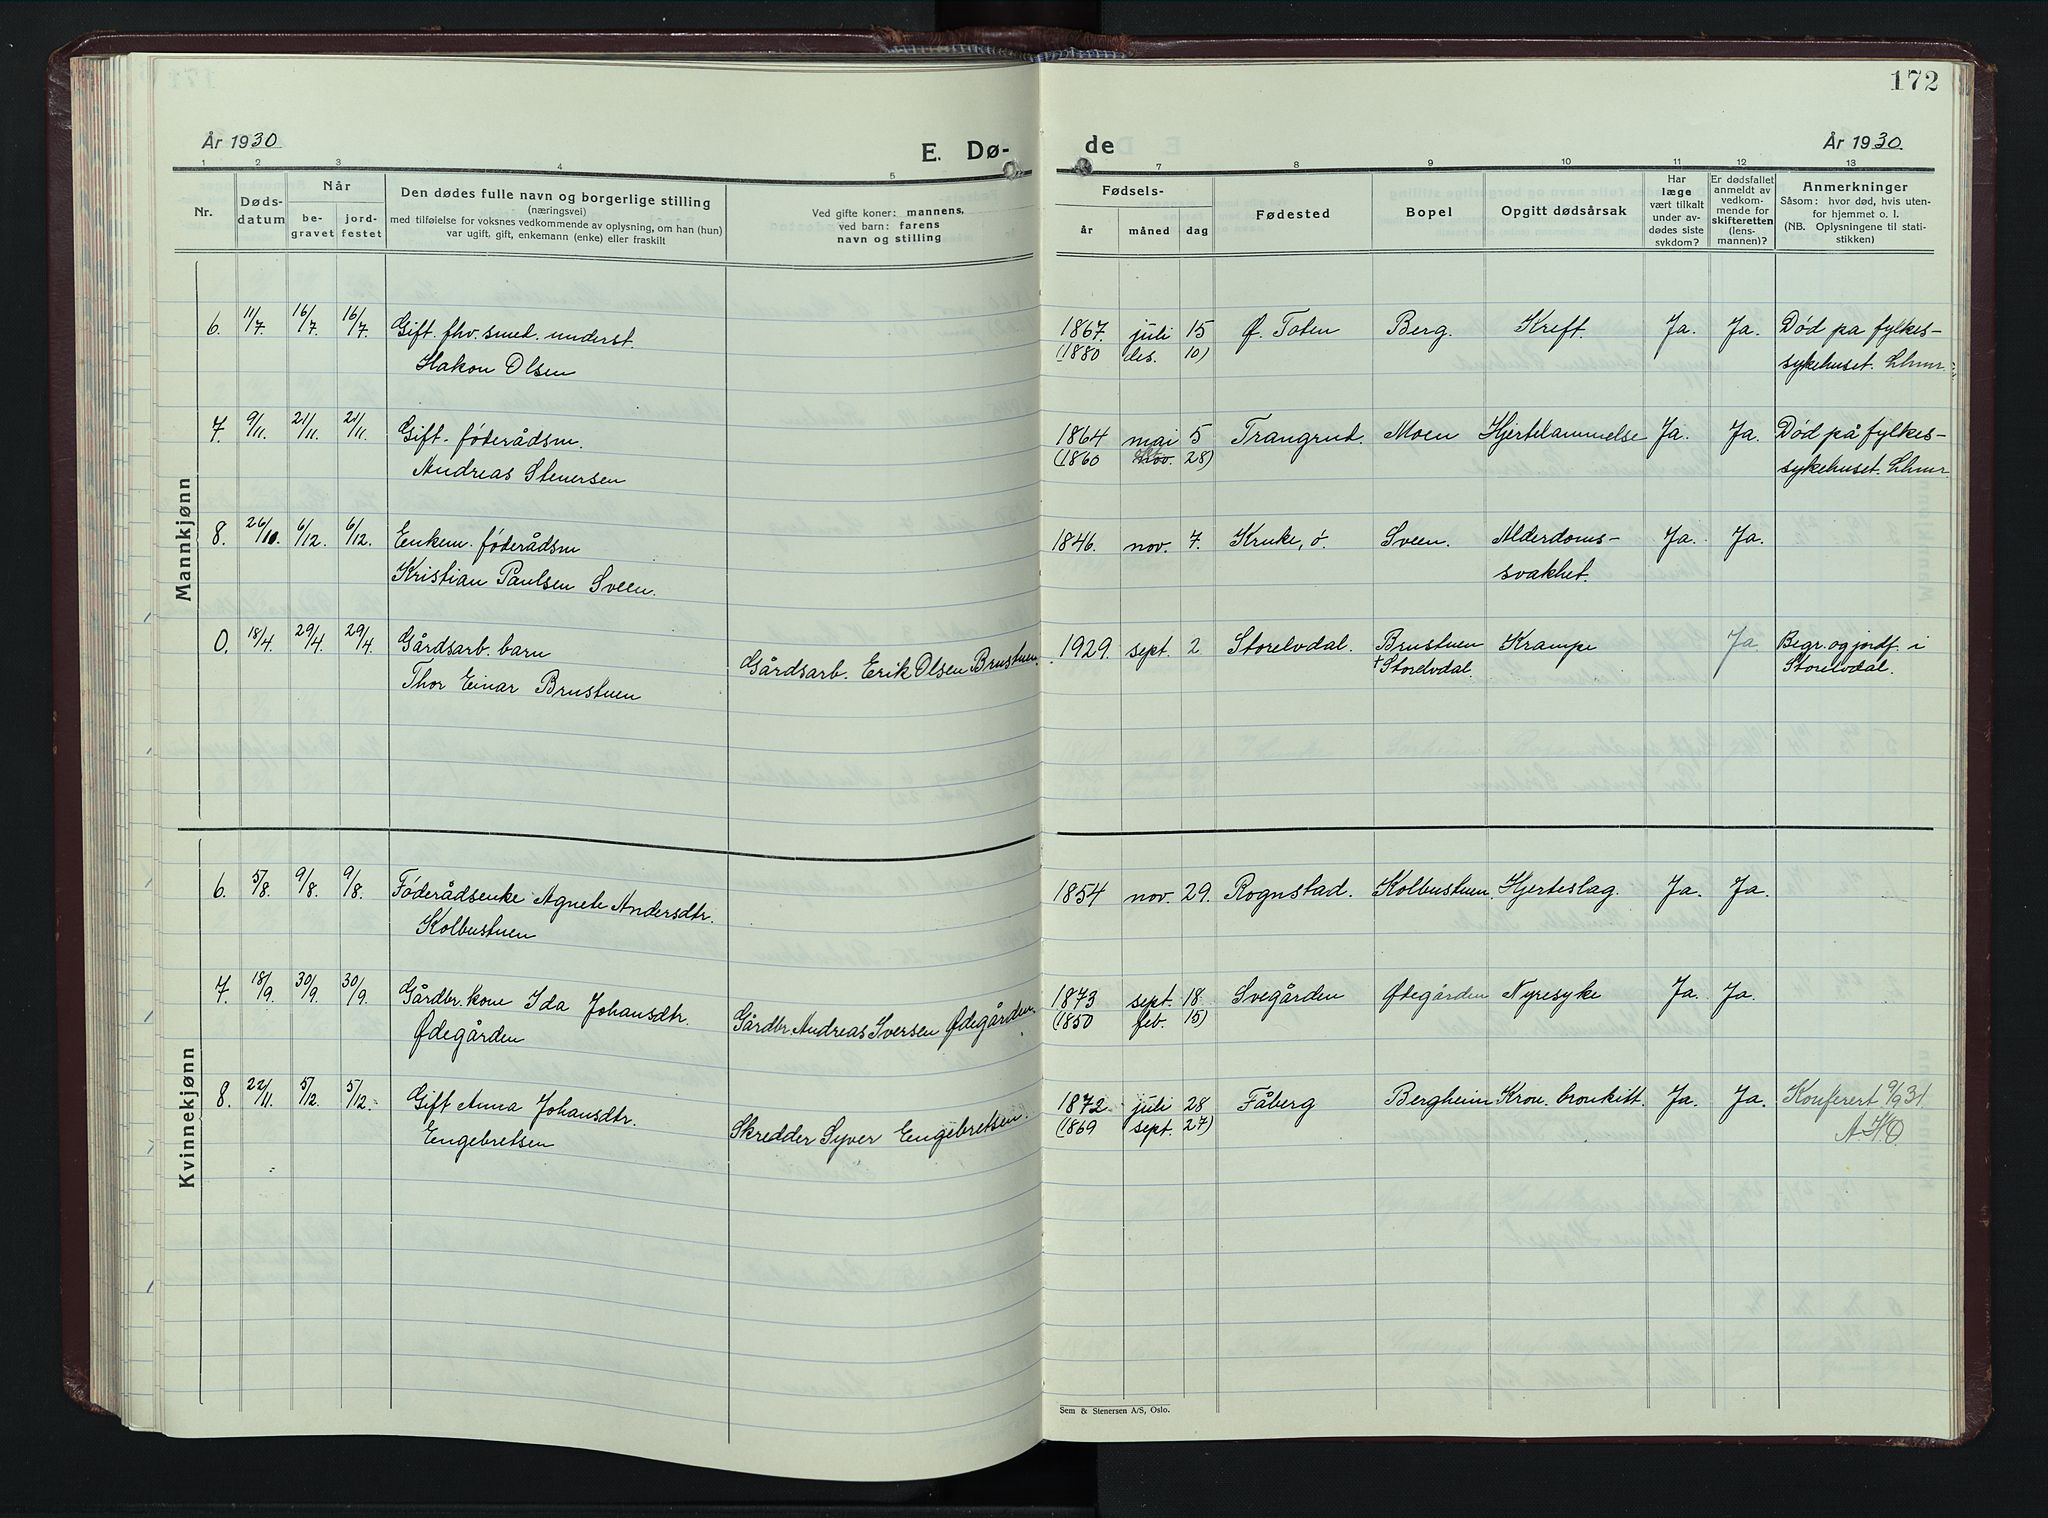 172
År 1930
E. Dø-
de
År 1930
1 2 3 4 5 7 8 9 10 11 12 13
Nr.
Døds-
datum
Når
be-
gravet
jord-
festet
Den dødes fulle navn og borgerlige stilling
(næringsvei)
med tilføielse for voksnes vedkommende av oplysning, om han (hun)
var ugift, gift, enkemann (enke) eller fraskilt
Ved gifte koner: mannens,
ved barn: farens
navn og stilling
Fødsels-
år
måned
dag
Fødested
Bopel
Opgitt dødsårsak
Har
læge
vært tilkalt
under av-
dødes siste
sykdom?
Er dødsfallet
anmeldt av
vedkom-
mende for
skifteretten
(lens-
mannen)?
Anmerkninger
Såsom: hvor død, hvis uten-
for hjemmet o. l.
(NB. Oplysningene til stati-
stikken)
Mannkjønn
6. 11/7. 16/7. 16/7. Gift. fhv. smed. underst. 1867. juli 15 Ø. Toten Berg. Kreft. Ja. Ja. Død på fylkes-
Hakon Olsen (1880 des. 10) sykehuset. Lhmr.
7. 9/11. 21/11. 21/11. Gift. føderådsm. 1864 mai 5 Trangrud. Moen Hjertelammelse Ja. Ja. Død på fylkes-
Andreas Stenersen (1860 28) sykehuset. Lhmr.
8. 26/10. 6/12. 6/12. Enkem. føderådsm 1846. nov. 7. Kruke, ö. Sveen. Alderdoms- Ja. Ja.
Kristian Paulsen Sveen. svakhet.
0. 18/4. 29/4. 29/4. Gårdsarb. barn Gårdsarb. Erik Olsen Brustuen. 1929. sept. 2 Storelvdal. Brustuen Krampe Ja Begr. og jordf. i
Thor Einar Brustuen † Storelvdal. Storelvdal.
Kvinnekjønn
6. 5/8. 9/8. 9/8. Føderådsenke Agnete Andersdtr. 1854 nov. 29. Rognstad. Kolbustuen. Hjerteslag. Ja. Ja.
Kolbustuen
7. 18/9. 30/9. 30/9. Gårdbr. kone Ida Johansdtr. Gårdbr. Andreas Iversen Ødegården. 1873 sept. 18. Svegården Ødegården Nyresyke Ja. Ja.
Ødegården (1850 feb. 15)
8. 22/11. 5/12. 5/12. Gift Anna Johansdtr. Skredder Syver Engebretsen. 1872 juli 28 Fåberg Bergheim Kron. bronkitt. Ja. Ja. Konferert 9/9 31
Engebretsen (1869 sept. 27) A.K.O.
Sem & Stenersen A/S, Oslo.